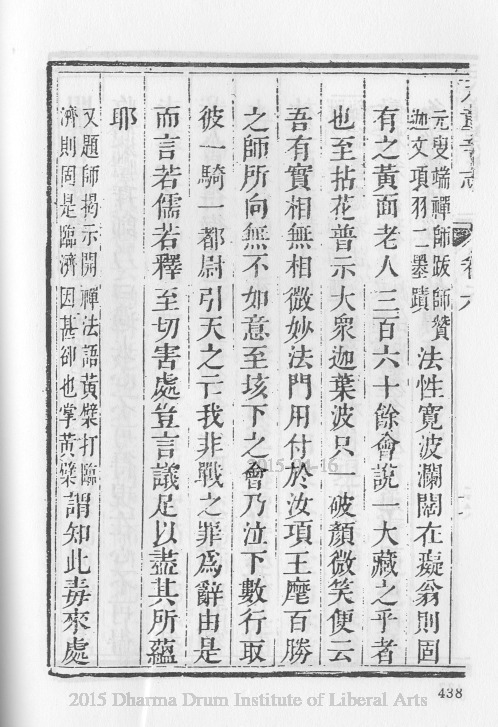 元叟端禪師跋師贊
迦文項羽二墨蹟
法性寬波瀾闊在癡翁則固
有之黃面老人三百六十餘會說一大藏之乎者
也至拈花普示大衆迦葉波只一破顏微笑便云
吾有實相無相微妙法門用付於汝項王麾百勝
之師所向無不如意至垓下之會乃泣下數行取
彼一騎一都尉引天之亡我非戰之罪爲辭由是
而言若儒若釋至切害處豈言議足以盡其所蘊
耶
又題師揭示開禪法語黃檗打臨
濟則固是臨濟因甚卻也掌黃檗
謂知此毒來處
438
2015 Dharma Drum Institute of Liberal Arts